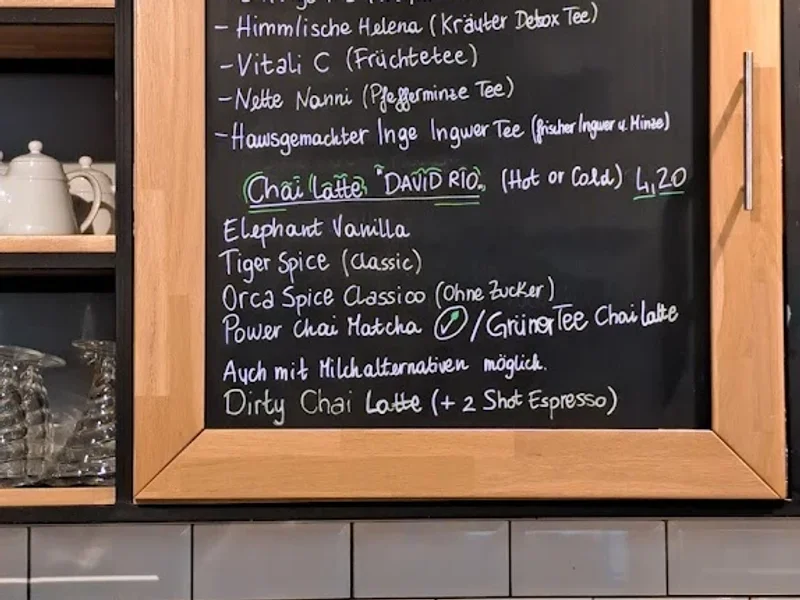 - Himmlische Helena (Kräuter Detox Tee)
- Vitali C (Früchtetee)
- Nette Nanni (Pfefferminze Tee)
- Hausgemachter Inge Ingwer Tee (frischer Ingwer u. Minze)
Chai Latte "DAVID RIO" (Hot or Cold) 4,20
Elephant Vanilla
Tiger Spice (Classic)
Orca Spice Classico (Ohne Zucker)
Power Chai Matcha / Grüner Tee Chai Latte
Auch mit Milchalternativen möglich.
Dirty Chai Latte (+ 2 Shot Espresso)